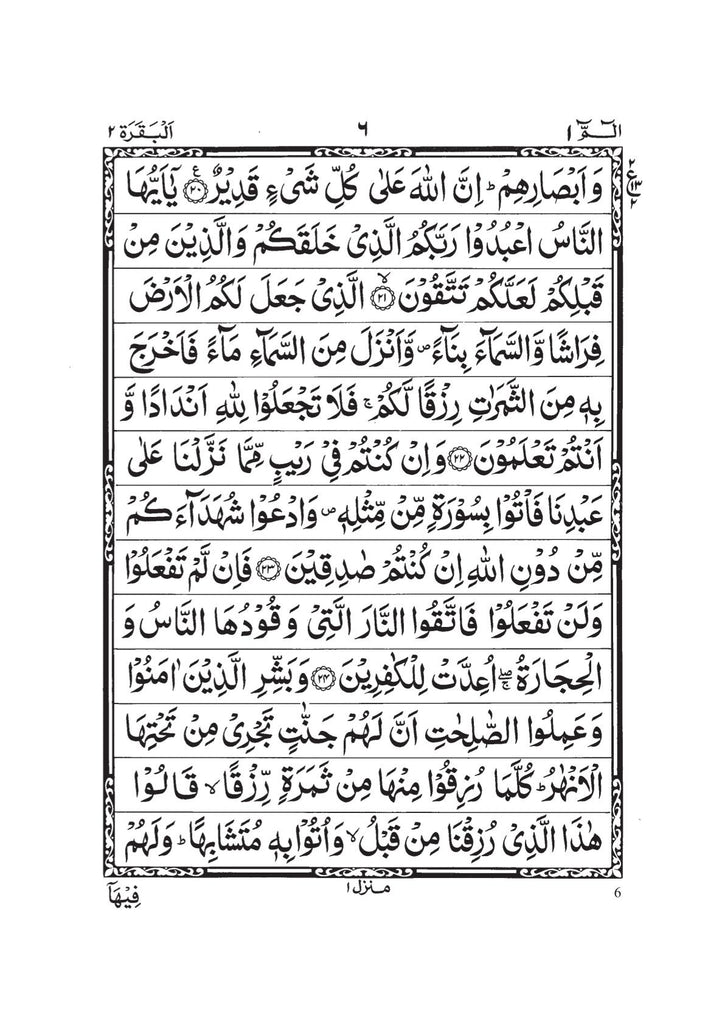 الٓمّٓ ۱ ۶ اَلْبَقَرَة ۲
وَاَبْصَارِهِمْ ؕ اِنَّ اللّٰهَ عَلٰى كُلِّ شَیْءٍ قَدِیْرٌ ۠ ﴿۲۰﴾ یٰۤاَیُّهَا
۲ ع ۱۳ ۲
النَّاسُ اعْبُدُوْا رَبَّكُمُ الَّذِیْ خَلَقَكُمْ وَالَّذِیْنَ مِنْ
قَبْلِكُمْ لَعَلَّكُمْ تَتَّقُوْنَ ۙ ﴿۲۱﴾ الَّذِیْ جَعَلَ لَكُمُ الْاَرْضَ
فِرَاشًا وَّالسَّمَآءَ بِنَآءً ۪ وَّاَنْزَلَ مِنَ السَّمَآءِ مَآءً فَاَخْرَجَ
بِهٖ مِنَ الثَّمَرٰتِ رِزْقًا لَّكُمْ ۚ فَلَا تَجْعَلُوْا لِلّٰهِ اَنْدَادًا وَّ
اَنْتُمْ تَعْلَمُوْنَ ﴿۲۲﴾ وَاِنْ كُنْتُمْ فِیْ رَیْبٍ مِّمَّا نَزَّلْنَا عَلٰى
عَبْدِنَا فَاْتُوْا بِسُوْرَةٍ مِّنْ مِّثْلِهٖ ۪ وَادْعُوْا شُهَدَآءَكُمْ
مِّنْ دُوْنِ اللّٰهِ اِنْ كُنْتُمْ صٰدِقِیْنَ ﴿۲۳﴾ فَاِنْ لَّمْ تَفْعَلُوْا
وَلَنْ تَفْعَلُوْا فَاتَّقُوا النَّارَ الَّتِیْ وَقُوْدُهَا النَّاسُ وَ
الْحِجَارَةُ ۖۚ اُعِدَّتْ لِلْكٰفِرِیْنَ ﴿۲۴﴾ وَبَشِّرِ الَّذِیْنَ اٰمَنُوْا
وَعَمِلُوا الصّٰلِحٰتِ اَنَّ لَهُمْ جَنّٰتٍ تَجْرِیْ مِنْ تَحْتِهَا
الْاَنْهٰرُ ؕ كُلَّمَا رُزِقُوْا مِنْهَا مِنْ ثَمَرَةٍ رِّزْقًا ۙ قَالُوْا
هٰذَا الَّذِیْ رُزِقْنَا مِنْ قَبْلُ ۙ وَاُتُوْا بِهٖ مُتَشَابِهًا ؕ وَلَهُمْ
6 منزل ۱ فِیْهَآ